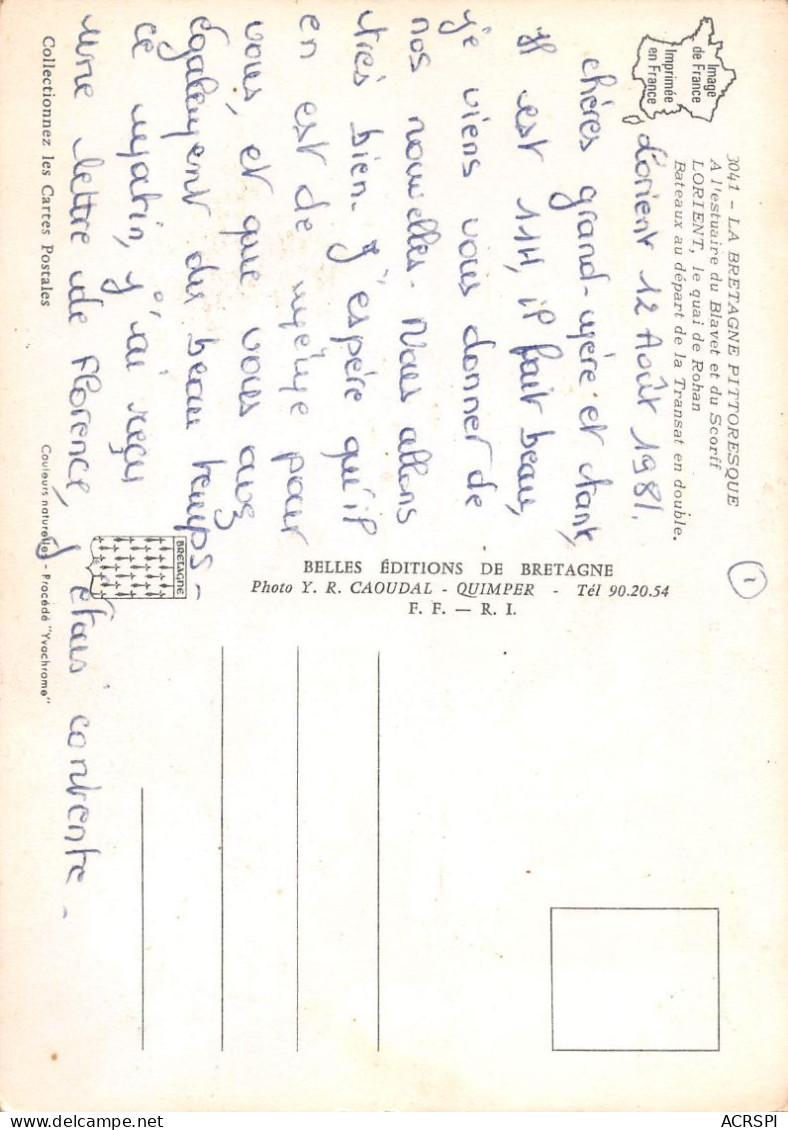 Image
de France
Imprimée
en France
3041 - LA BRETAGNE PITTORESQUE
A l'estuaire du Blavet et du Scorff
LORIENT, le quai de Rohan
Bateaux au départ de la Transat en double.
Lorient 12 Août 1981.
chères grand-mère et tante,
Il est 11H, il fait beau,
je viens vous donner de
nos nouvelles. Nous allons
très bien. J'espère qu'il
en est de même pour
vous, et que vous avez
également du beau temps -
ce matin, j'ai reçu
une lettre de Florence, j'étais contente -
Collectionnez les Cartes Postales
Couleurs naturelles - Procédé "Yvochrome"
BRETAGNE
1
BELLES ÉDITIONS DE BRETAGNE
Photo Y. R. CAOUDAL - QUIMPER - Tél 90.20.54
F. F. — R. I.
ACRSPI